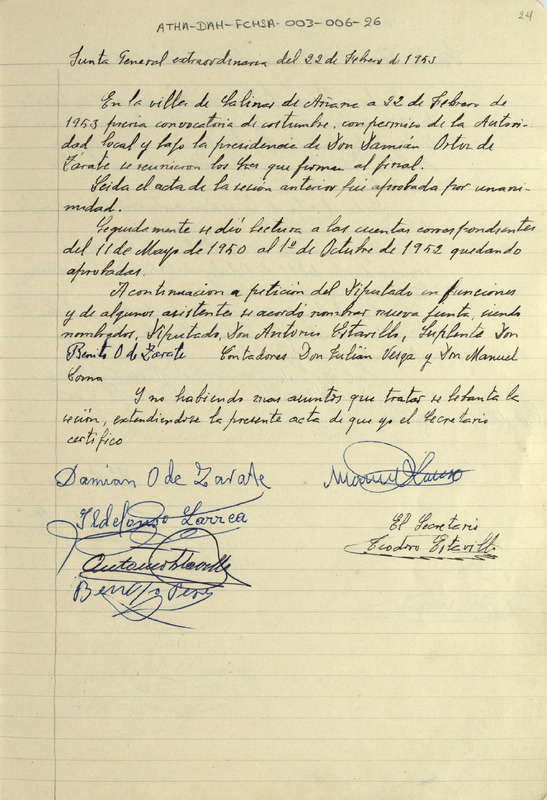 24
ATHA-DAH-FCMSA-003-006-26
Junta General extraordinaria del 22 de Febrero de 1953
En la villa de Salinas de Añana a 22 de Febrero de
1953 previa convocatoria de costumbre, con permiso de la Autori-
dad local y bajo la presidencia de Don Damian Ortiz de
Zárate se reunieron los Sres que firman al final.
Leida el acta de la sesión anterior fué aprobada por unani-
midad.
Seguidamente se dió lectura a las cuentas correspondientes
del 11 de Mayo de 1950 al 1º de Octubre de 1952 quedando
aprobadas.
A continuacion a petición del Diputado en funciones
y de algunos asistentes se acordó nombrar nueva junta, siendo
nombrados, Diputado, Don Antonio Estavillo, Suplente Don
Benito O de Zarate Contadores Don Julián Vesga y Don Manuel
Y no habiendo mas asuntos que tratar se levanta la
sesión, extendiendose la presente acta de que yo el Secretario
certifico
Damian O de Zarate
Manuel
Ildefonso Larrea
El Secretario
Teodoro Estavillo
Antonio Estavillo